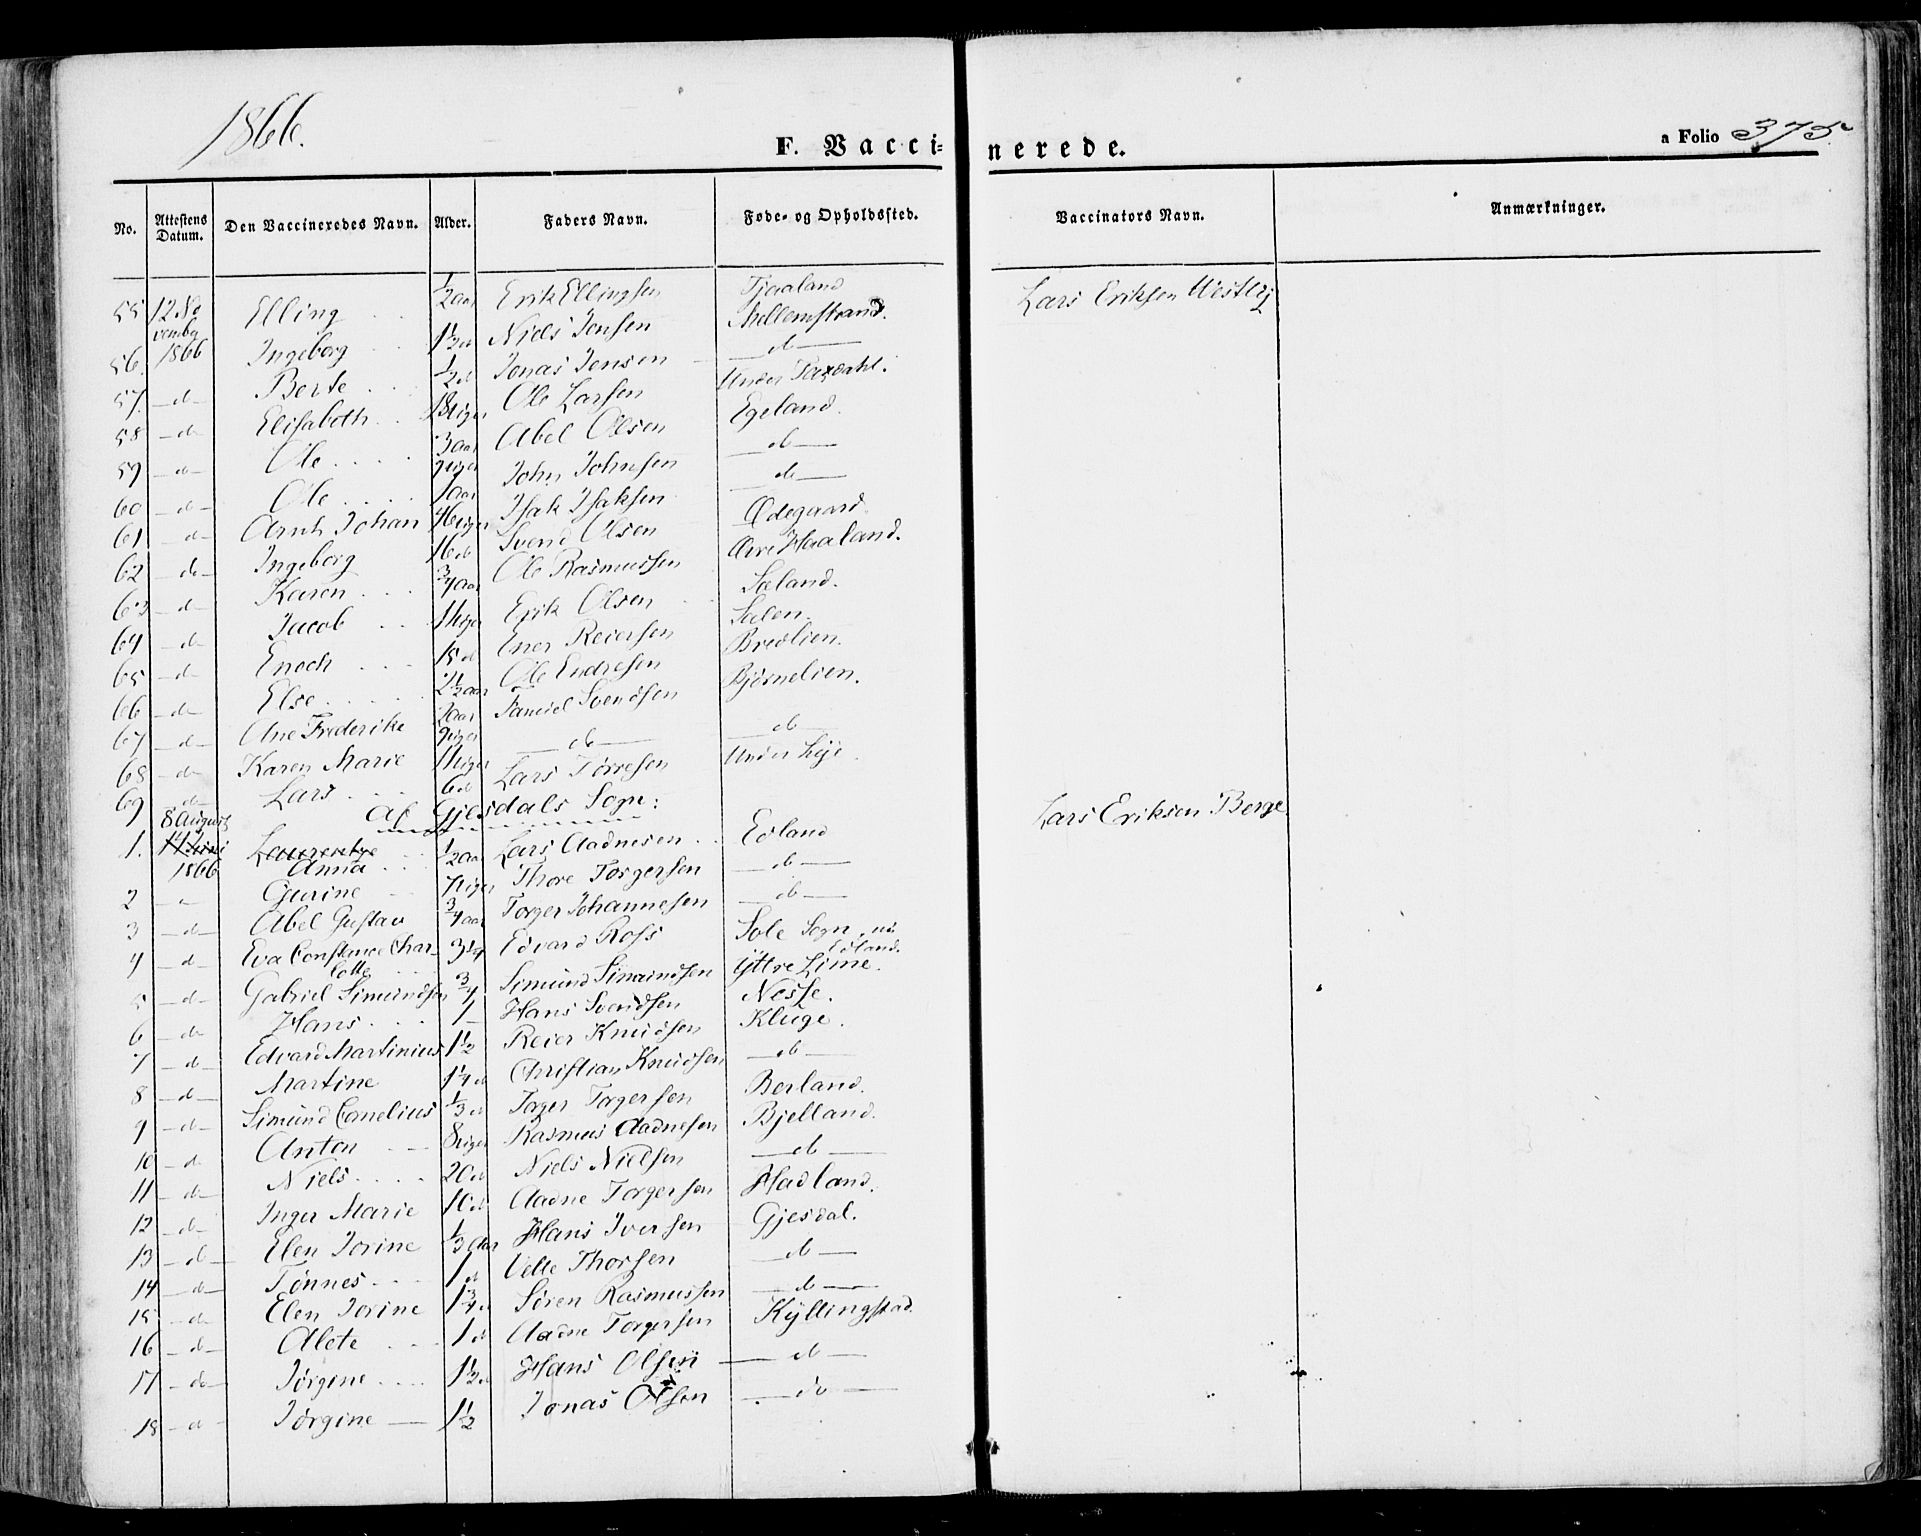 1866.
F. Vaccinerede.
a Folio 375
No. Attestens Datum. Den Vaccineredes Navn. Alder. Faders Navn. Føde- og Opholdssted. Vaccinators Navn. Anmærkninger.
55 12 No Elling 1/2 aar Erik Ellingsen Tjaaland Lars Eriksen Westly
vemba
56. 1866 Ingeborg 1 1/2 d Niels Jensen Mellemstrand.
57. - d - Berte 1/2 d Jonas Jensen - d -
58 - d - Elisabeth 18 Uger Ole Larsen Under Taxdahl.
59 - d - Ole 3 aar Abel Olsen Egeland.
60 - d - Ole John Johnsen - d -
61 - d - Arnt Johan Isak Isaksen - d -
62 - d - Ingeborg 16 d Svend Olsen Ødegaard.
63 - d - Karen 3/4 aar Ole Rasmussen Øvre Haaland.
64 - d - Jacob 11 Uger Erik Olsen Sæland.
65 - d - Enoch 15 d Ener Reiersen Salen.
66 - d - Else 2 1/2 aar Ole Endresen Bredlien.
67 - d - Ane Frederike 2 aar Samuel Svendsen Bjørnelien.
68 - d - Karen Marie 11 Uger - d - - d -
69 - d - Lars 6 d Lars Tørresen Under Lye.
Af Gjesdals Sogn:
8 August
1. 1866 Anna 1/2 aar Lars Aadnesen Edland Lars Eriksen Berge
2 - Gurine 7 Uger Thore Torgersen - d -
3 - d - Abel Gustav 3/4 aar Torger Johannesen - d -
4 - d - Eva Constance Char- 3 1/4 Edvard Ross Sole Sogn, nu
lotte Edland.
5 - d - Gabriel Simundsen 3/4 Simund Simundsen Yttre Lime.
6 - d - Hans 1 - Hans Svendsen Nesse.
7 - d - Edvard Martinius 1 1/2 Reier Knudsen Kluge.
8 - d - Martine 1 1/4 d Christian Knudsen - d -
9 - d - Simund Cornelius 1/3 d Torger Torgersen Berland.
10 - d Anton 8 Uger Rasmus Aadnesen Bjelland.
11 - d - Niels 20 d Niels Nielsen - d -
12 - d - Inger Marie 10 d Aadne Torgersen Hadland.
13 - d - Elen Jorine 1/3 Aar Hans Iversen Gjesdal.
14 - d - Tønnes 1 d Velle Thorsen - d -
15 - d - Elen Jorine 1 3/4 d Søren Rasmussen - d -
16 - d - Alete 1 d Aadne Torgersen Kyllingstad.
17 - d - Jørgine 1 1/2 d Hans Olsen - d -
18 - d - Jørgine - 1 1/2 Jonas Olsen - d -